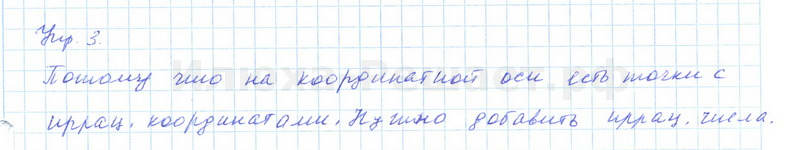 Упр. 3.
Потому что на координатной оси есть точки с
иррац. координатами. Нужно добавить иррац. числа.